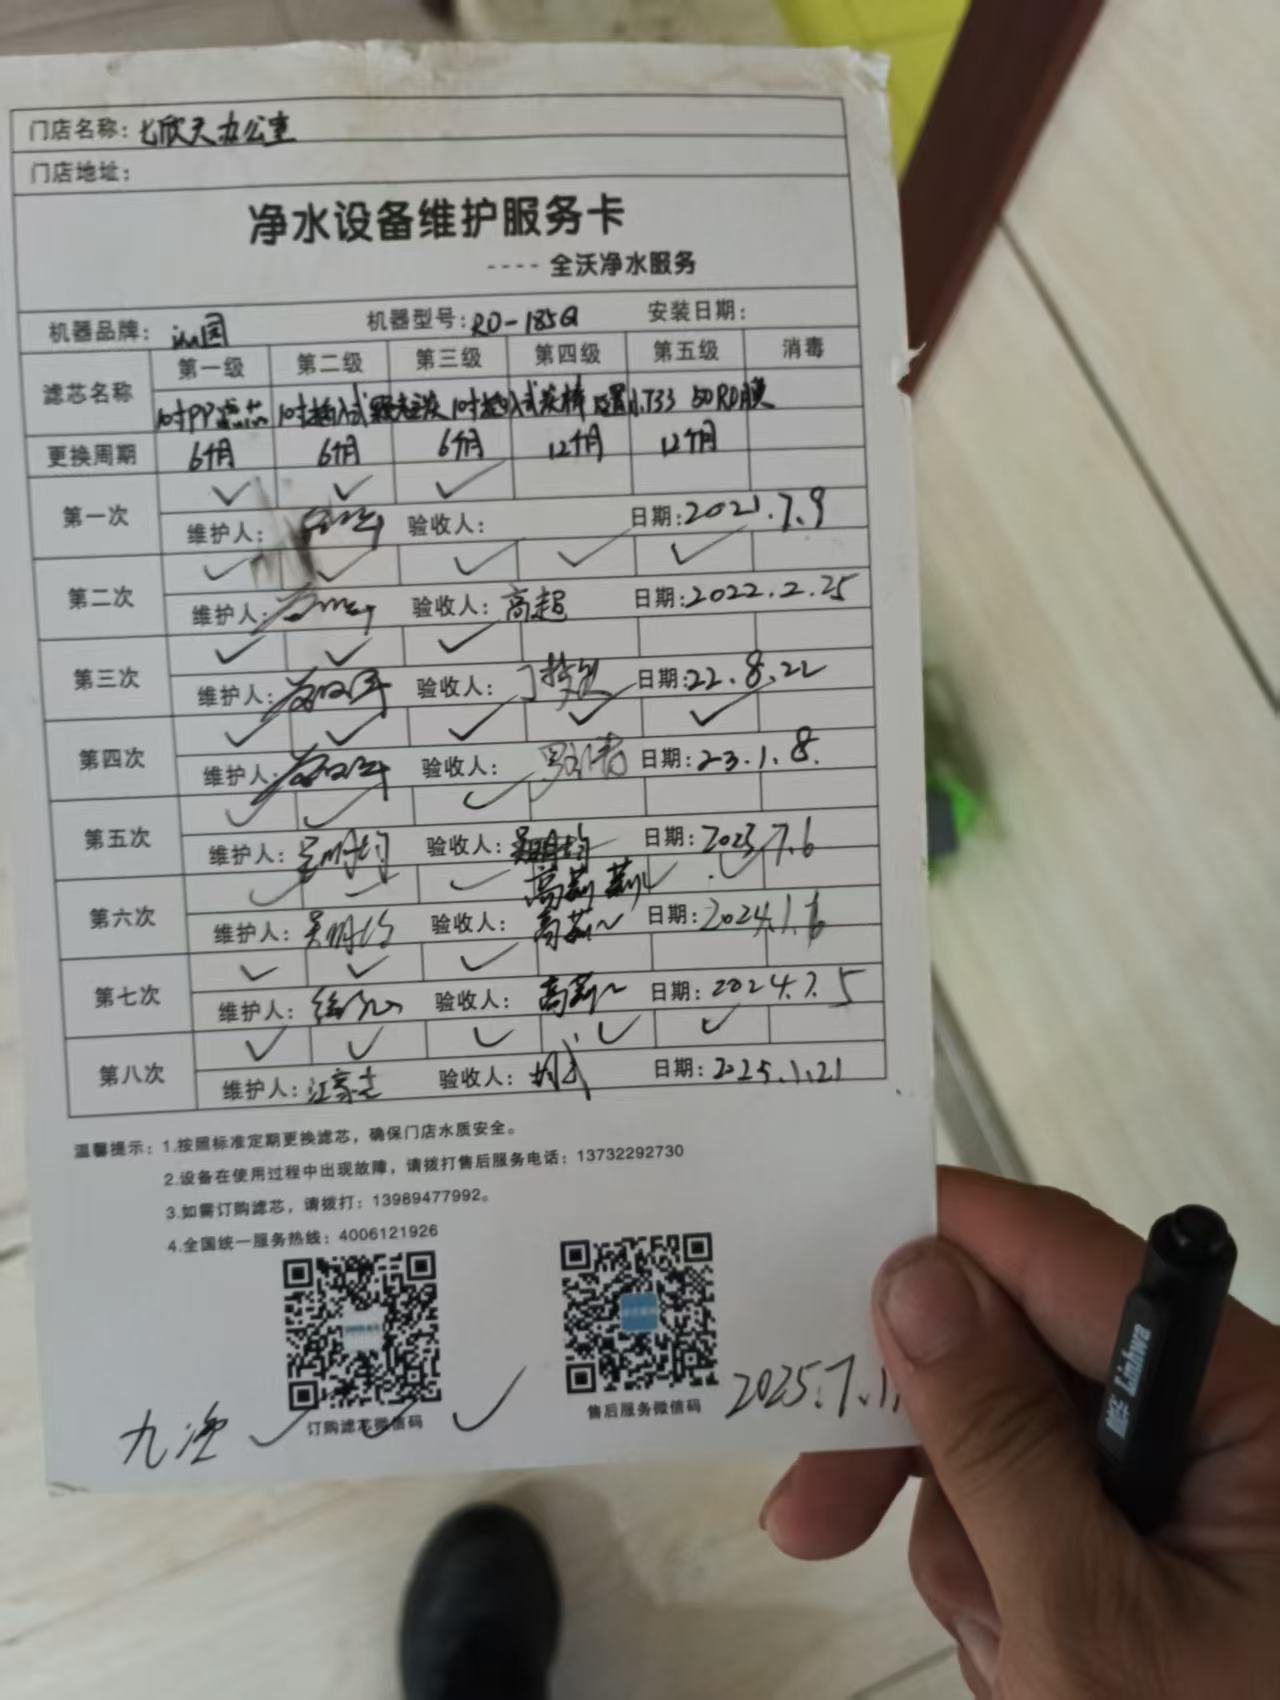 门店名称：七欣天办公室
门店地址：
净水设备维护服务卡
---- 全沃净水服务
机器品牌： 机器型号：RO-185Q 安装日期：
滤芯名称 第一级 第二级 第三级 第四级 第五级 消毒
10寸PP滤芯 10寸插入式颗粒炭 10寸插入式炭棒 后置小T33 50RO膜
更换周期 6个月 6个月 6个月 12个月 12个月
第一次 ✓ ✓ ✓
维护人： 验收人： 日期：2021.7.9
第二次 ✓ ✓ ✓ ✓ ✓
维护人： 验收人：高超 日期：2022.2.25
第三次 ✓ ✓ ✓
维护人： 验收人： 日期：22.8.22
第四次 ✓ ✓ ✓ ✓ ✓
维护人： 验收人： 日期：23.1.8.
第五次 ✓ ✓ ✓
维护人：吴明均 验收人：吴明均 日期：2023.7.6
第六次 ✓ ✓ ✓ ✓ ✓
维护人：吴明均 验收人： 日期：2024.1.6
第七次 ✓ ✓ ✓
维护人： 验收人： 日期：2024.7.5
第八次 ✓ ✓ ✓ ✓ ✓
维护人： 验收人： 日期：2025.1.21
温馨提示：1.按照标准定期更换滤芯，确保门店水质安全。
2.设备在使用过程中出现故障，请拨打售后服务电话：13732292730
3.如需订购滤芯，请拨打：13989477992。
4.全国统一服务热线：4006121926
订购滤芯微信码 售后服务微信码
九 ✓ ✓ ✓ 2025.7.11
Linhwa